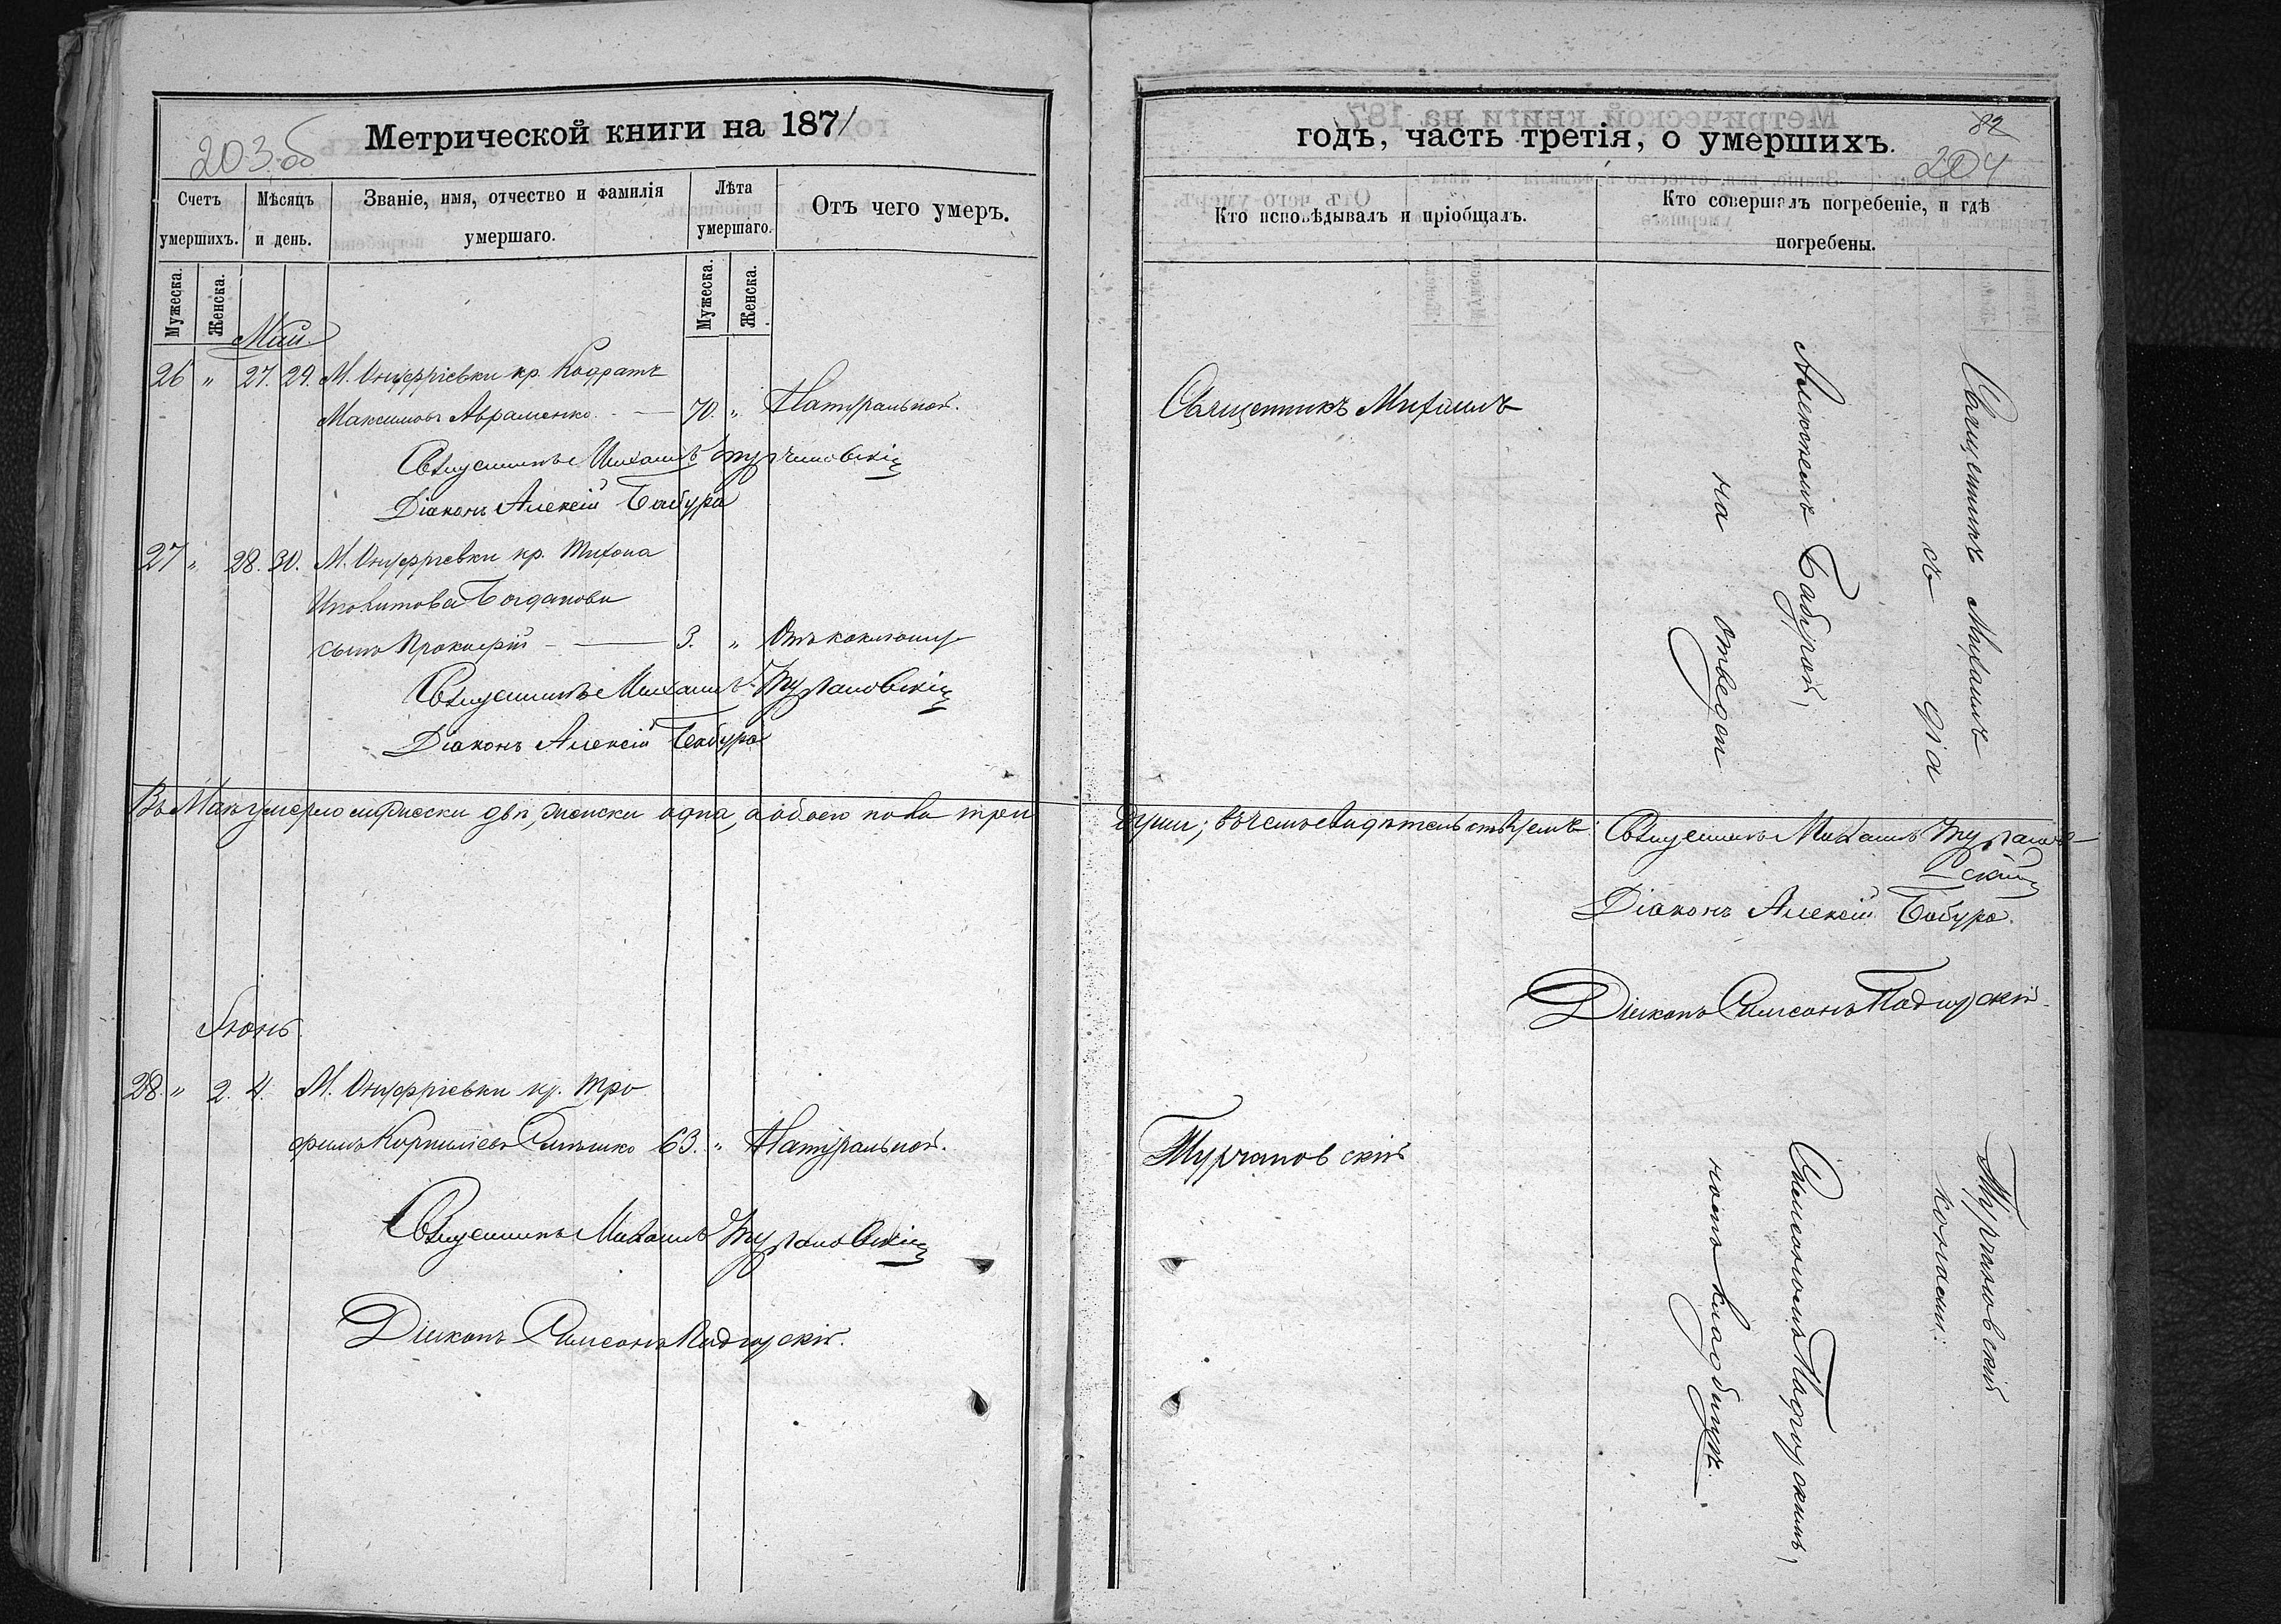 203 об
Метрической книги на 1871
Счетъ умершихъ.
Мѣсяцъ и день.
Званіе, имя, отчество и фамилія умершаго.
Лѣта умершаго.
Отъ чего умеръ.
Мужеска.
Женска.
Мужеска.
Женска.
Май.
26 " 27. 29. М. Онуфріевки кр. Кодратъ
Максимовъ Авраменко. — 70. " Натуральной.
Священникъ Михаилъ Турчановскій
Діаконъ Алексій Бабура
27 " 28. 30. М. Онуфріевки кр. Тихона
Иполитова Богданова
сынъ Прокофій — 3. " Отъ коклюша
Священникъ Михаилъ Турчановскій
Діаконъ Алексій Бабура
Въ Маѣ умерло мужески два, женски одна, а обоего пола три
Іюнь.
28. " 2. 4. М. Онуфріевки кр. Тро
фимъ Корниліевъ 63. " Натуральной.
Священникъ Михаилъ Турчановскій
Діаконъ Симеонъ Подгурскій.
годъ, часть третія, о умершихъ.
82
204
Кто исповѣдывалъ и пріобщалъ.
Кто совершалъ погребеніе, и гдѣ погребены.
Священникъ Михаилъ
Священникъ Михаилъ
съ діа
Алексіемъ Бабурой,
на отведен
души; въ чемъ свидѣтельствуемъ: Священникъ Михаилъ Турчанов-
скій
Діаконъ Алексій Бабура.
Діаконъ Симеонъ Подгурскій.
Турчановскій
Турчановскій
конами:
Симеономъ Подгурскимъ,
номъ кладбищѣ.